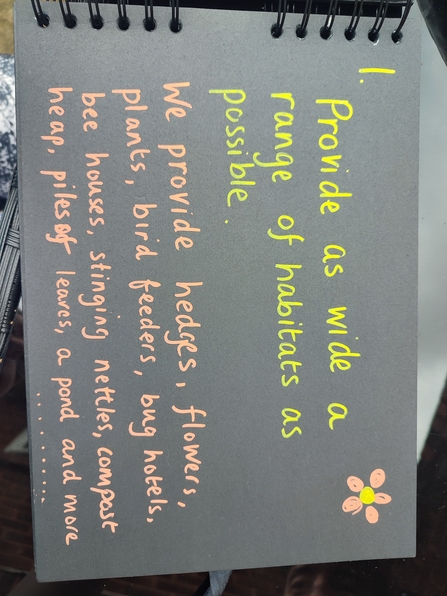 1.
Provide as wide a
range of habitats as
possible.
We provide hedges, flowers,
plants, bird feeders, bug hotels,
bee houses, stinging nettles, compost
heap, piles of leaves, a pond and more
..........